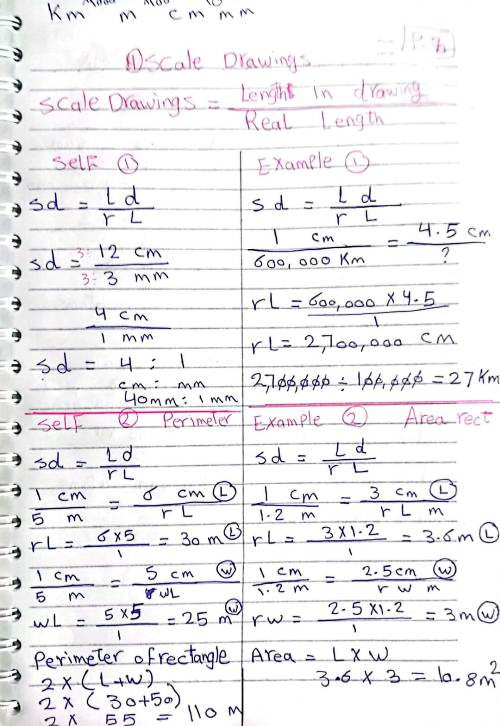 Km 1000 m 100 cm 10 mm
P. 8
① Scale Drawings
Scale Drawings = Length in drawing / Real Length
Self ①
sd = L d / r L
sd = 3÷ 12 cm / 3÷ 3 mm
4 cm / 1 mm
sd = 4 : 1
cm : mm
40mm : 1mm
Example ①
sd = L d / r L
1 cm / 600,000 Km = 4.5 cm / ?
rL = 600,000 x 4.5 / 1
rL = 2,700,000 cm
2,700,000 ÷ 100,000 = 27 Km
Self ② Perimeter
sd = Ld / rL
1 cm / 5 m = 6 cm Ⓛ / rL
rL = 6x5 / 1 = 30 m Ⓛ
1 cm / 5 m = 5 cm Ⓦ / wL
wL = 5x5 / 1 = 25 m Ⓦ
Perimeter of rectangle
2 x (L+w)
2 x (30+50)
2 x 55 = 110 m
Example ② Area rect
sd = Ld / rL
1 cm / 1.2 m = 3 cm Ⓛ / rL m
rL = 3x1.2 / 1 = 3.6 m Ⓛ
1 cm / 1.2 m = 2.5cm Ⓦ / r w m
rw = 2.5x1.2 / 1 = 3m Ⓦ
Area = L x w
3.6 x 3 = 10.8m²